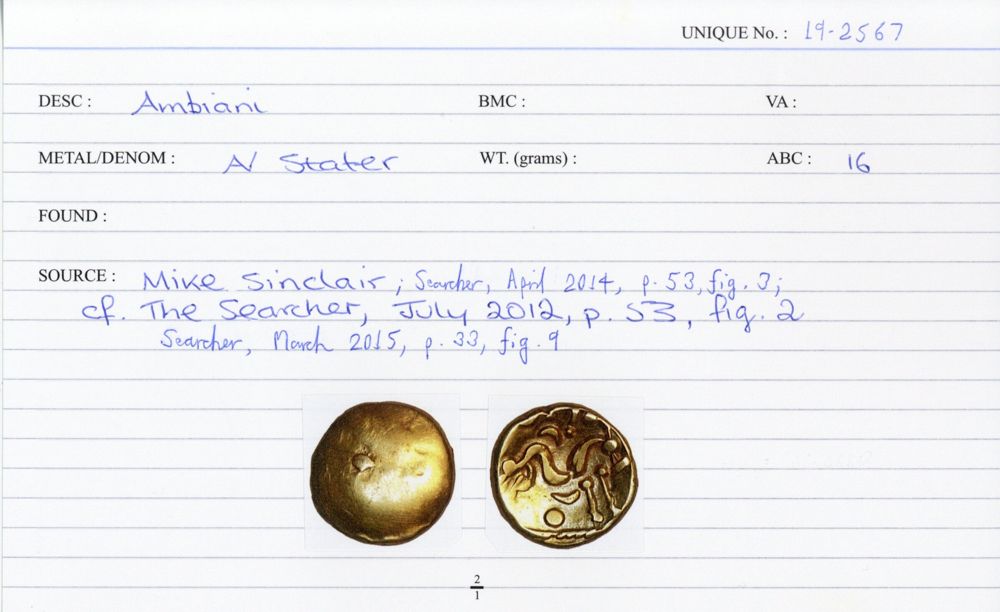 UNIQUE No. : 19-2567
DESC : Ambiani BMC : VA :
METAL/DENOM : A/ Stater WT. (grams) : ABC : 16
FOUND :
SOURCE : Mike Sinclair ; Searcher, April 2014, p. 53, fig. 3;
cf. The Searcher, July 2012, p. 53, fig. 2
Searcher, March 2015, p. 33, fig. 9
2
1